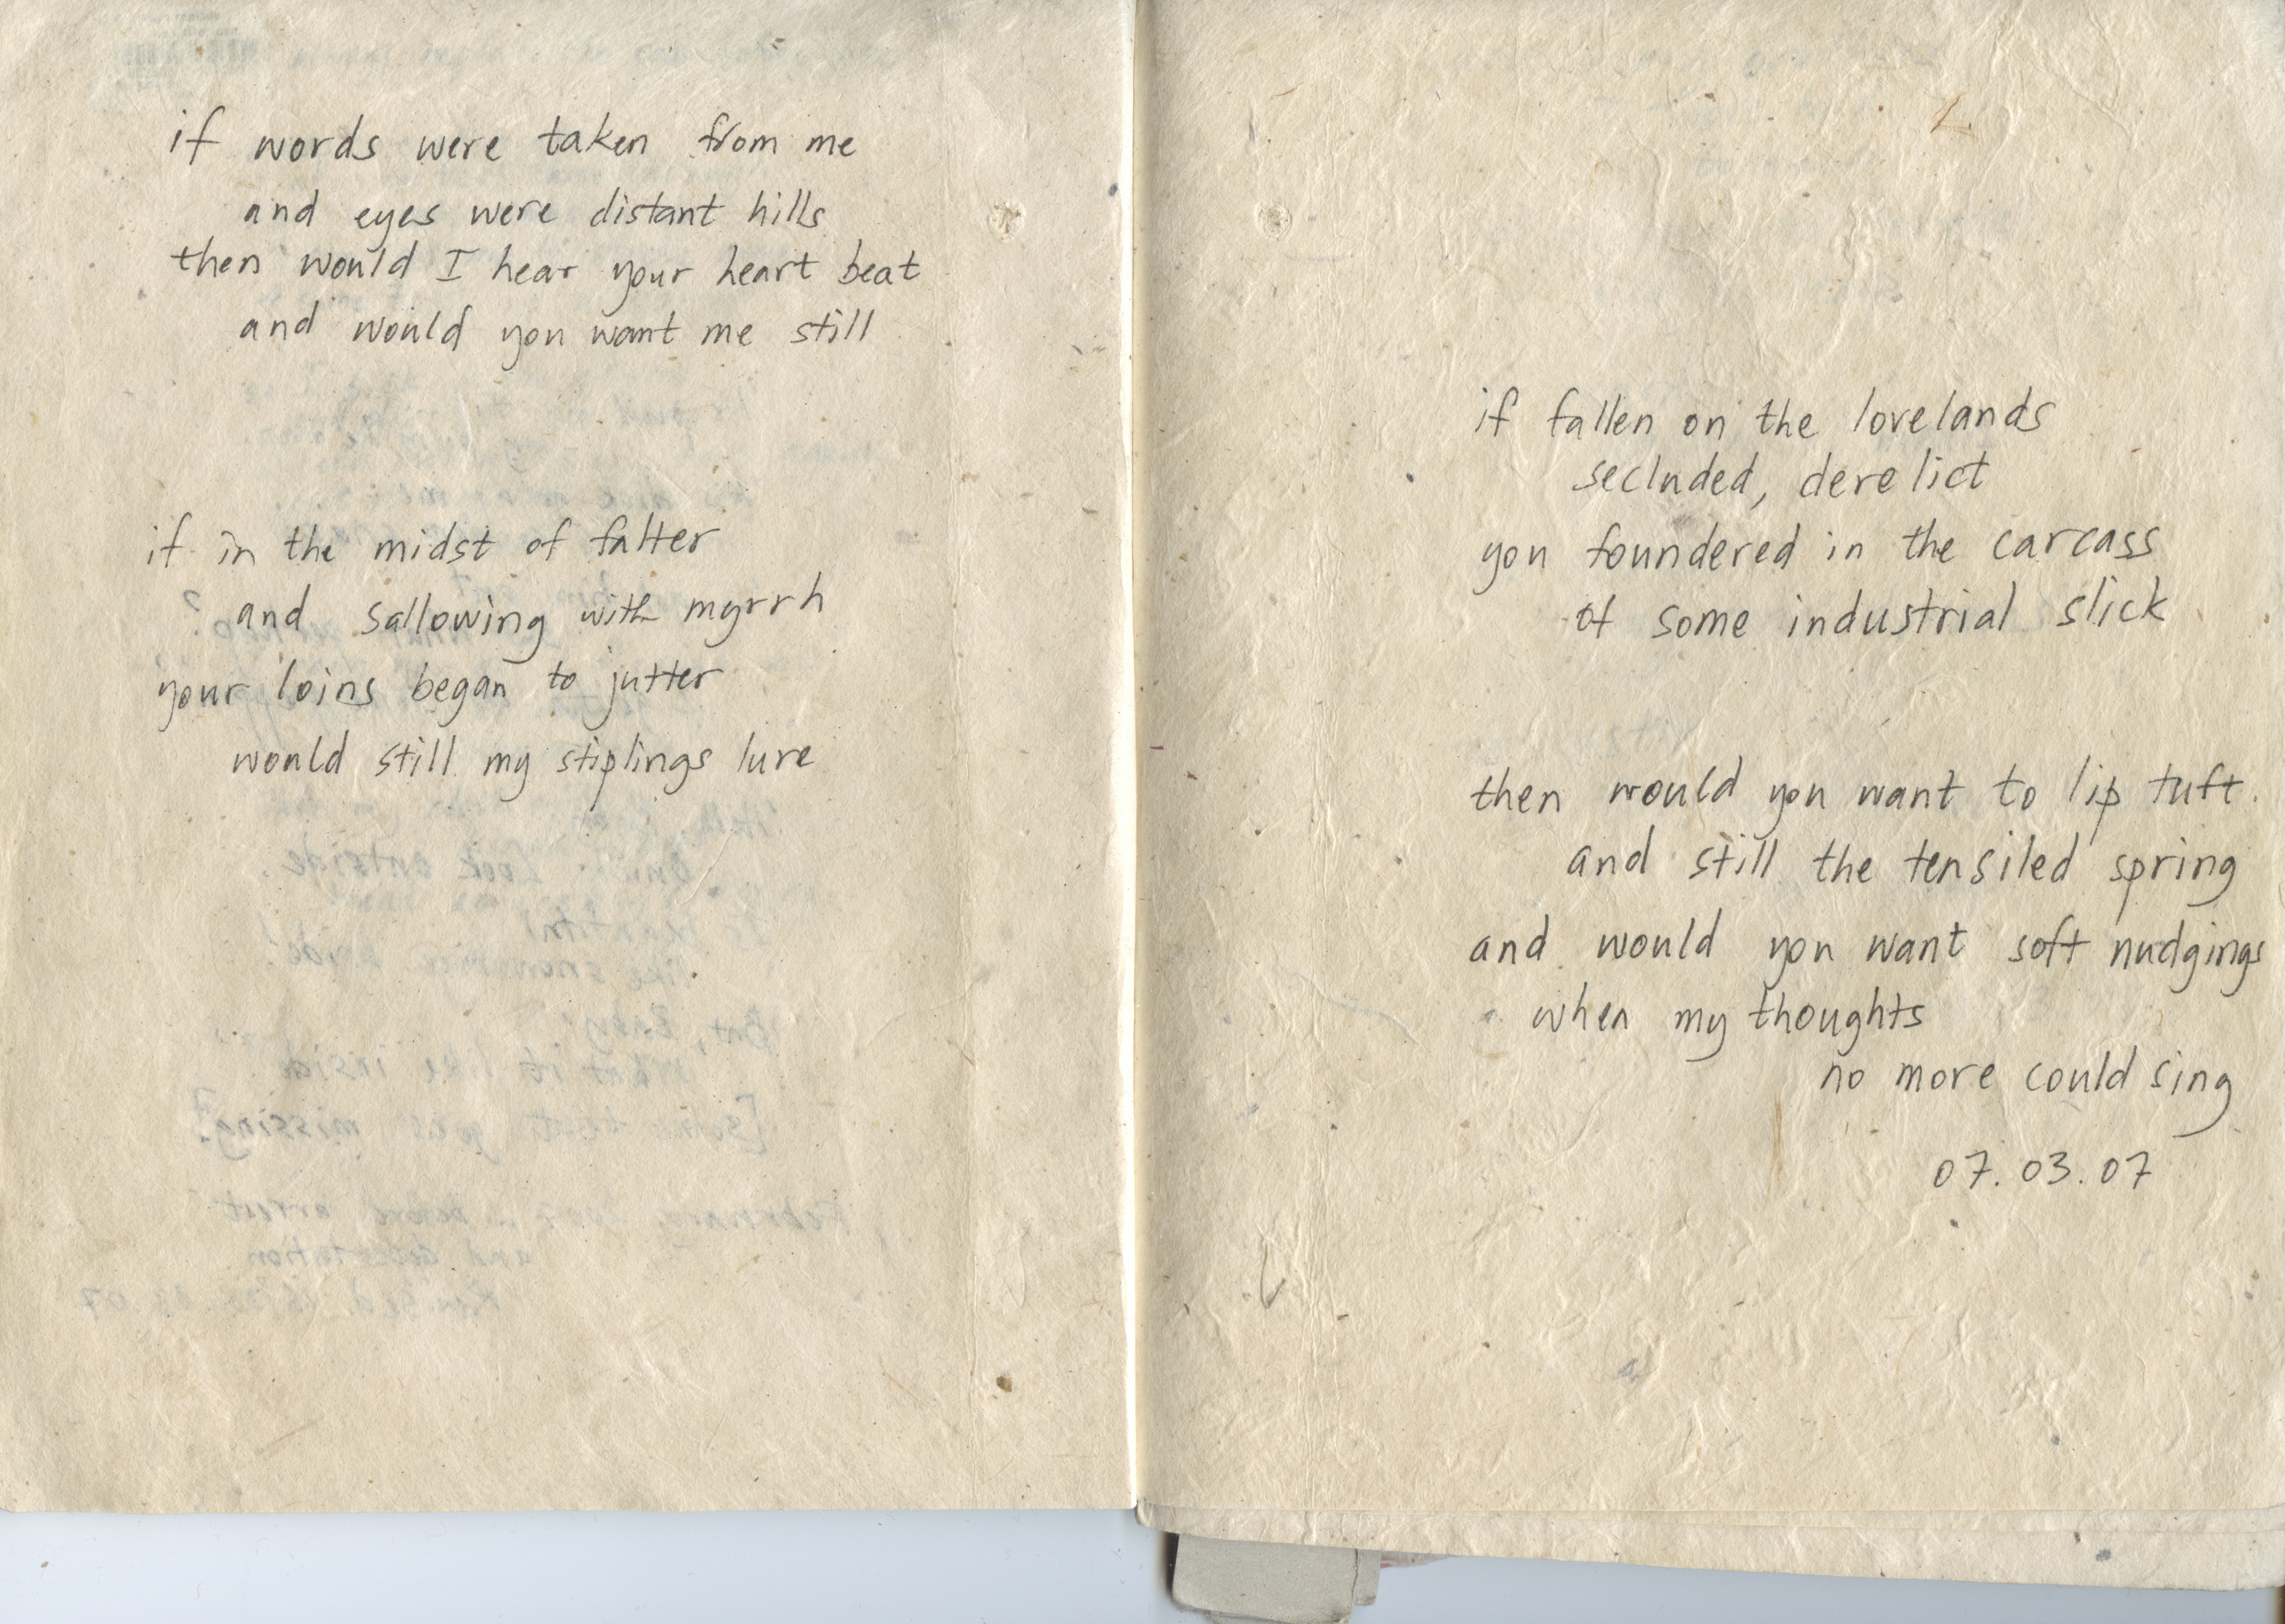 if words were taken from me
and eyes were distant hills
then would I hear your heart beat
and would you want me still
if in the midst of falter
and sallowing with myrrh
your loins began to jutter
would still my stiplings lure
if fallen on the lovelands
secluded, derelict
you foundered in the carcass
of some industrial slick
then would you want to lip tuft
and still the tensiled spring
and would you want soft nudgings
when my thoughts
no more could sing
07.03.07